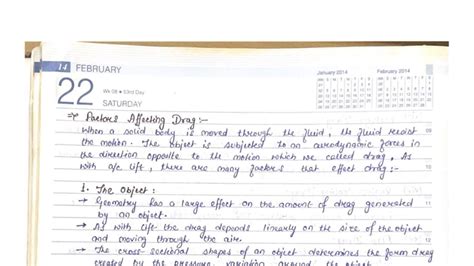 14 FEBRUARY
22
Wk 08 • 53rd Day
SATURDAY
January 2014
February 2014
⇒ Factors Affecting Drag:-
When a solid body is moved through the fluid, the fluid resist
the motion. The object is subjected to an aerodynamic forces in
the direction opposite to the motion which we called drag, As
with a/c lift, there are many factors that effect drag:-
1. The Object:
→ Geometry has a large effect on the amount of drag generated
by an object.
→ As with lift the drag depends linearly on the size of the object
and moving through the air.
→ The cross-sectional shapes of an object determines the form drag
created by the pressure variation around the object